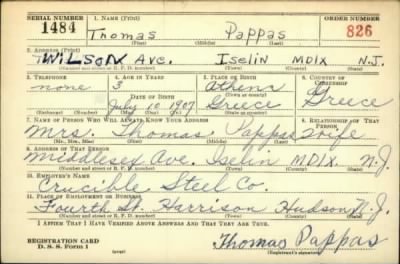 SERIAL NUMBER 1. NAME (Print) ORDER NUMBER
1484 Thomas Pappas 826
(First) (Middle) (Last)
2. ADDRESS (Print)
WILSON AVE. ISELIN MDIX N.J.
(Number and street or R. F. D. number) (Town) (County) (State)
3. TELEPHONE 4. AGE IN YEARS 5. PLACE OF BIRTH 6. COUNTRY OF CITIZENSHIP
none 3 Athens
DATE OF BIRTH (Town or county)
July 10 1907 Greece Greece
(Mo.) (Day) (Yr.) (State or country)
7. NAME OF PERSON WHO WILL ALWAYS KNOW YOUR ADDRESS 8. RELATIONSHIP OF THAT PERSON
Mrs. Thomas Pappas wife
(Mr., Mrs., Miss) (First) (Middle) (Last)
9. ADDRESS OF THAT PERSON
Middlesex Ave. Iselin MDIX. N.J.
(Number and street or R. F. D. number) (Town) (County) (State)
10. EMPLOYER'S NAME
Crucible Steel Co.
11. PLACE OF EMPLOYMENT OR BUSINESS
Fourth St. Harrison Hudson N.J.
(Number and street or R. F. D. number) (Town) (County) (State)
I AFFIRM THAT I HAVE VERIFIED ABOVE ANSWERS AND THAT THEY ARE TRUE.
REGISTRATION CARD
D. S. S. Form 1 (over) Thomas Pappas
(Registrant's signature)